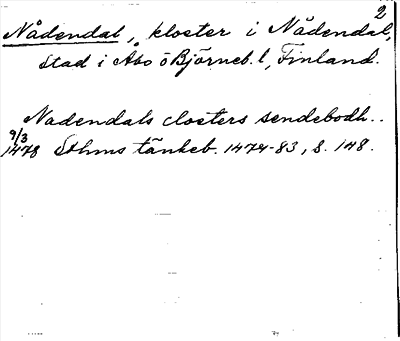 2
Nådendal, kloster i Nådendal,
stad i Åbo o Björneb. l, Finland.
Nadendals closters sendebodh..
9/3
1478 Sthms tänkeb. 1474-83, S. 148.